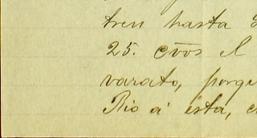 tren hasta
25. cvos el
varato, porqu
Rio a esta, e